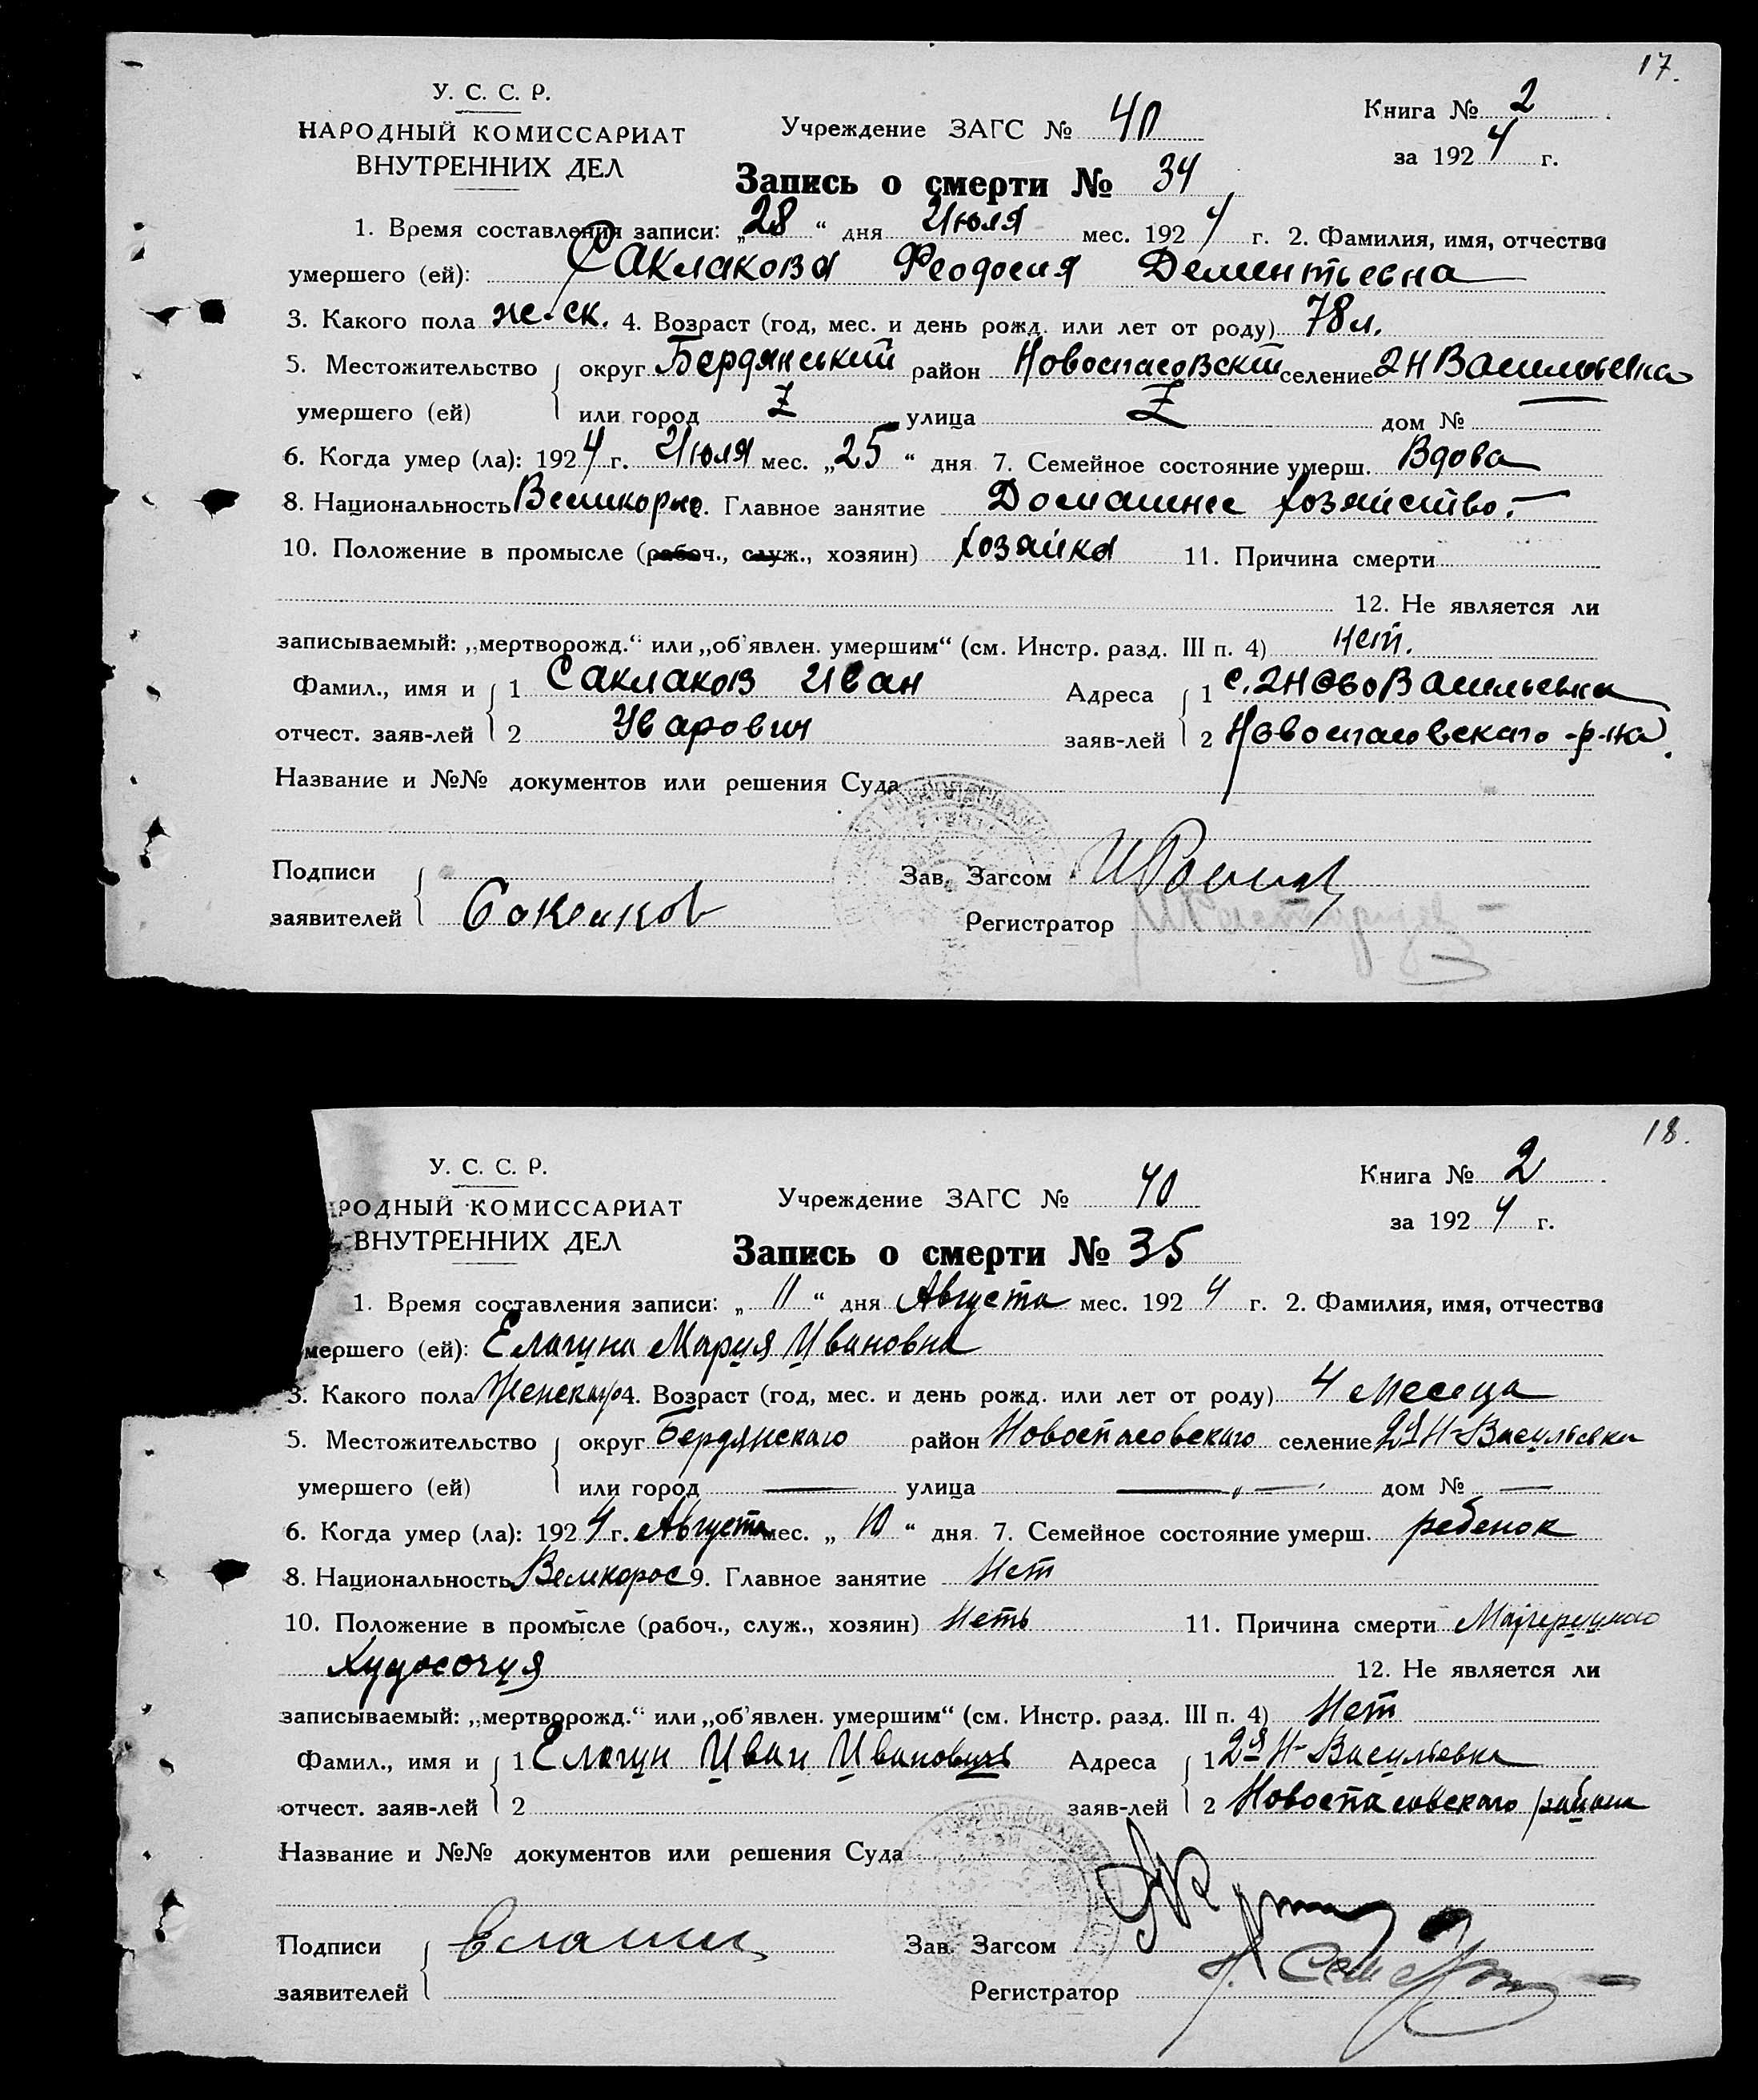 17.
У. С. С. Р.
НАРОДНЫЙ КОМИССАРИАТ
ВНУТРЕННИХ ДЕЛ
Учреждение ЗАГС № 40
Книга № 2
за 1924 г.
Запись о смерти № 34
1. Время составления записи: „28“ дня Июля мес. 1924 г. 2. Фамилия, имя, отчество
умершего (ей): Саклакова Феодосия Дементьевна
3. Какого пола же-ск. 4. Возраст (год, мес. и день рожд. или лет от роду) 78 л.
5. Местожительство округ Бердянський район Новоспасовский селение 2 Н Васильевка
умершего (ей) или город Z улица Z дом №
6. Когда умер (ла): 1924 г. Июля мес. „25“ дня 7. Семейное состояние умерш. Вдова
8. Национальность Великорос. Главное занятие Домашнее хозяйство.
10. Положение в промысле (рабоч., служ., хозяин) хозяйка 11. Причина смерти
12. Не является ли
записываемый: „мертворожд.“ или „об'явлен. умершим“ (см. Инстр. разд. III п. 4) нет.
Фамил., имя и 1 Саклаков Иван Адреса 1 с. 2 Ново Васильевка
отчест. заяв-лей 2 Уварович заяв-лей 2 Новоспасовскаго р-на.
Название и №№ документов или решения Суда
Подписи Зав. Загсом
заявителей Саклаков Регистратор
18.
У. С. С. Р.
РОДНЫЙ КОМИССАРИАТ
ВНУТРЕННИХ ДЕЛ
Учреждение ЗАГС № 40
Книга № 2
за 1924 г.
Запись о смерти № 35
1. Время составления записи: „11“ дня Августа мес. 1924 г. 2. Фамилия, имя, отчество
мершего (ей): Елагина Мария Ивановна
3. Какого пола Женскаго 4. Возраст (год, мес. и день рожд. или лет от роду) 4 месеца
5. Местожительство округ Бердянскаго район Новоспасовскаго селение 2я Н-Васильевка
умершего (ей) или город — улица —„— дом № —
6. Когда умер (ла): 1924 г. Августа мес. „10“ дня 7. Семейное состояние умерш. ребенок
8. Национальность Великорос 9. Главное занятие Нет
10. Положение в промысле (рабоч., служ., хозяин) Неть 11. Причина смерти
Худосочия 12. Не является ли
записываемый: „мертворожд.“ или „об'явлен. умершим“ (см. Инстр. разд. III п. 4) Нет
Фамил., имя и 1 Елагин Иван Ивановичь Адреса 1 2я Н-Васильевка
отчест. заяв-лей 2 заяв-лей 2 Новоспасовскаго района
Название и №№ документов или решения Суда
Подписи Елагин Зав. Загсом
заявителей Регистратор